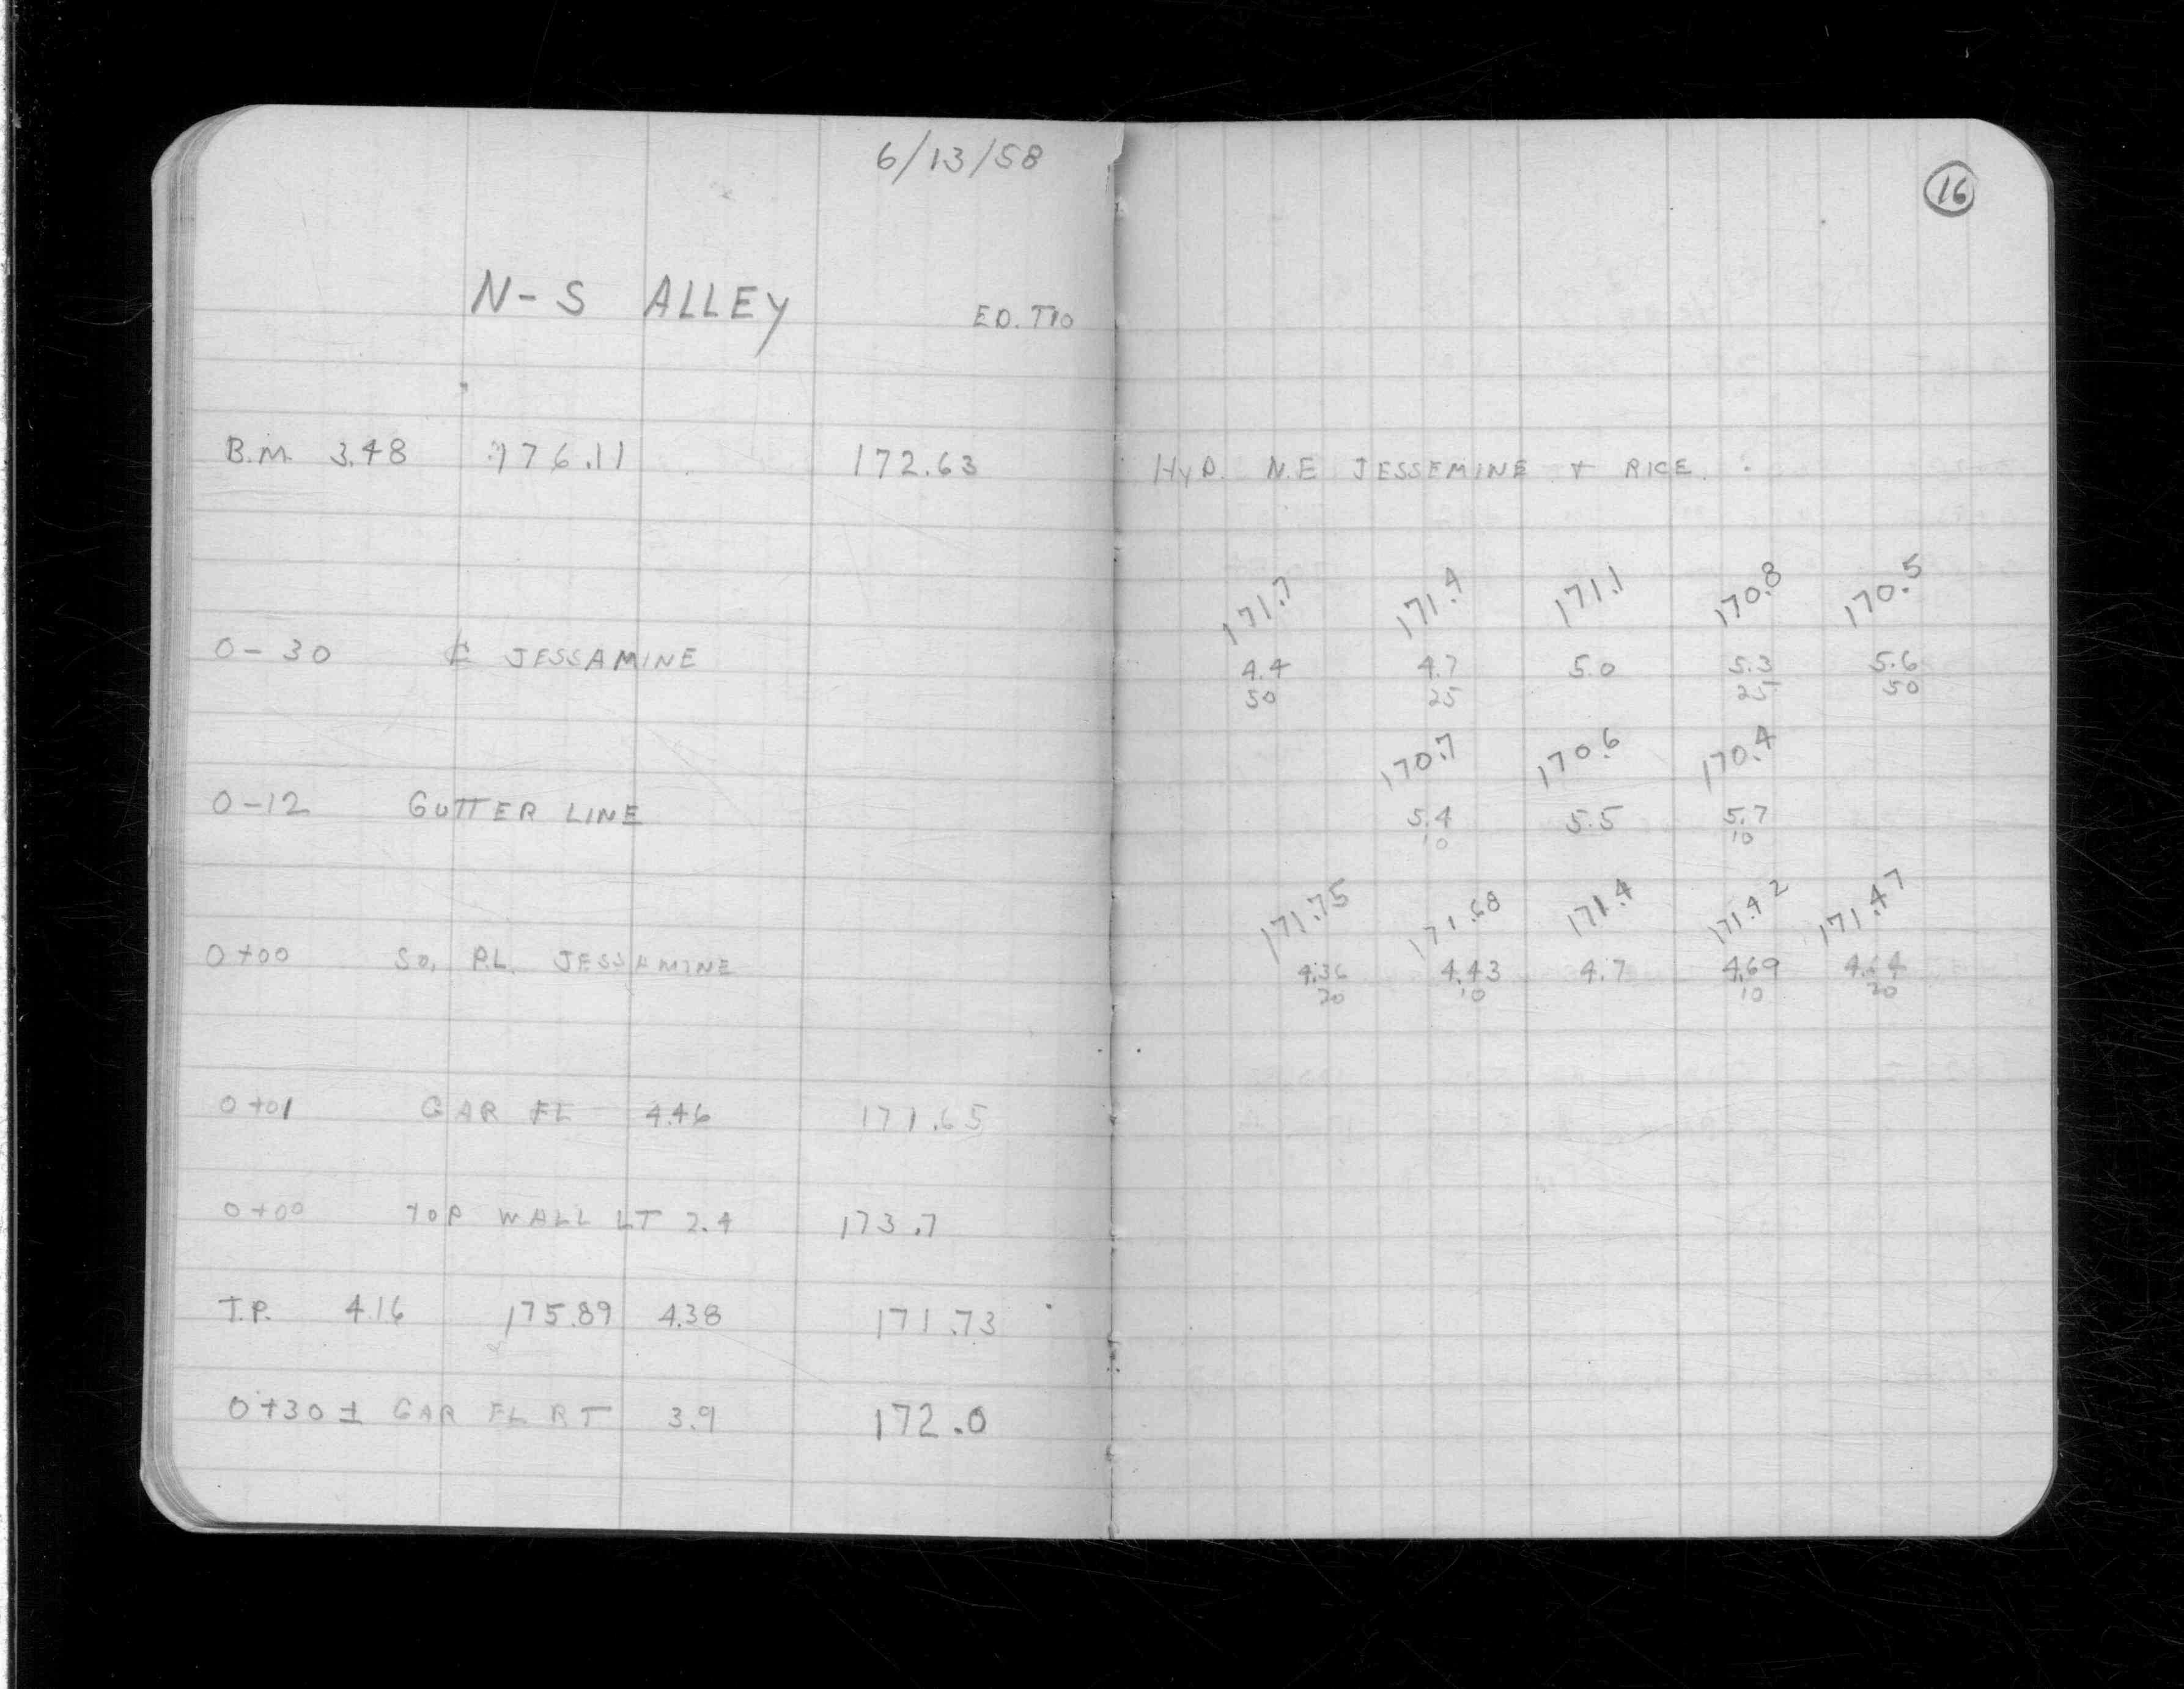 6/13/58
16
N-S ALLEY
B.M. 3.48 176.11 172.63 HYD. N.E JESSEMINE + RICE.
171.7 171.4 171.1 170.8 170.5
0-30 ℄ JESSAMINE 4.4 4.7 5.0 5.3 5.6
50 25 25 50
170.7 170.6 170.4
0-12 GUTTER LINE 5.4 5.5 5.7
10 10
171.75 171.68 171.4 171.42 171.47
0+00 SO. P.L. JESSAMINE 4.36 4.43 4.7 4.69 4.64
20 10 10 20
0+01 GAR FL 4.46 171.65
0+00 TOP WALL LT 2.4 173.7
T.P. 4.16 175.89 4.38 171.73
0+30 ± GAR FL RT 3.9 172.0